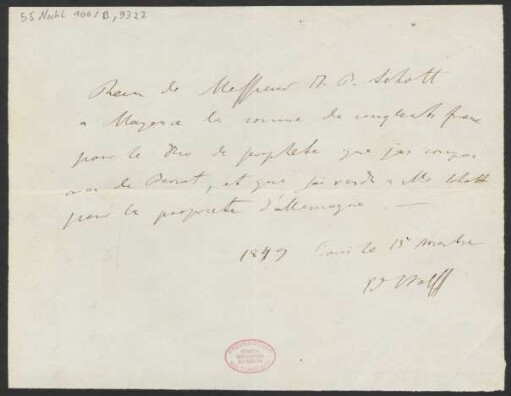 55 Nachl 100/B, 9322
Recu de Messieur B. Schott
a Mayence la somme de cinq cents franc
pour le Duo de prophete que j'ai compos
avec de Beriot, et que j'ai vendu a Mr Schott
pour la propriete d'allemagne —
1849 Paris le 15
Ed Wolff